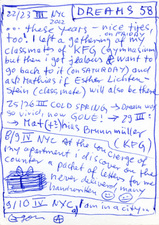 22/23 III NYC 2002
DREAMS 58
... these years – nice times,
too! I go to a gathering of my
classmates of KFG (gymnasium)
but then i get jealous & want to
go back to it (on SATURDAY) and
ask Mathias if Esther Lichten-
stein (classmate) will also be there
25/26 III COLD SPRING, → Dream was
so vivid, now GONE! → 29 III:
→ Mat(t)hias Brunnmüller
8/9 IV NYC At the (KFG)
my apartment i discover on the
counter a pocket of letters for me
never handed
handwritten many
9/10 IV NYC, I am in a city ...